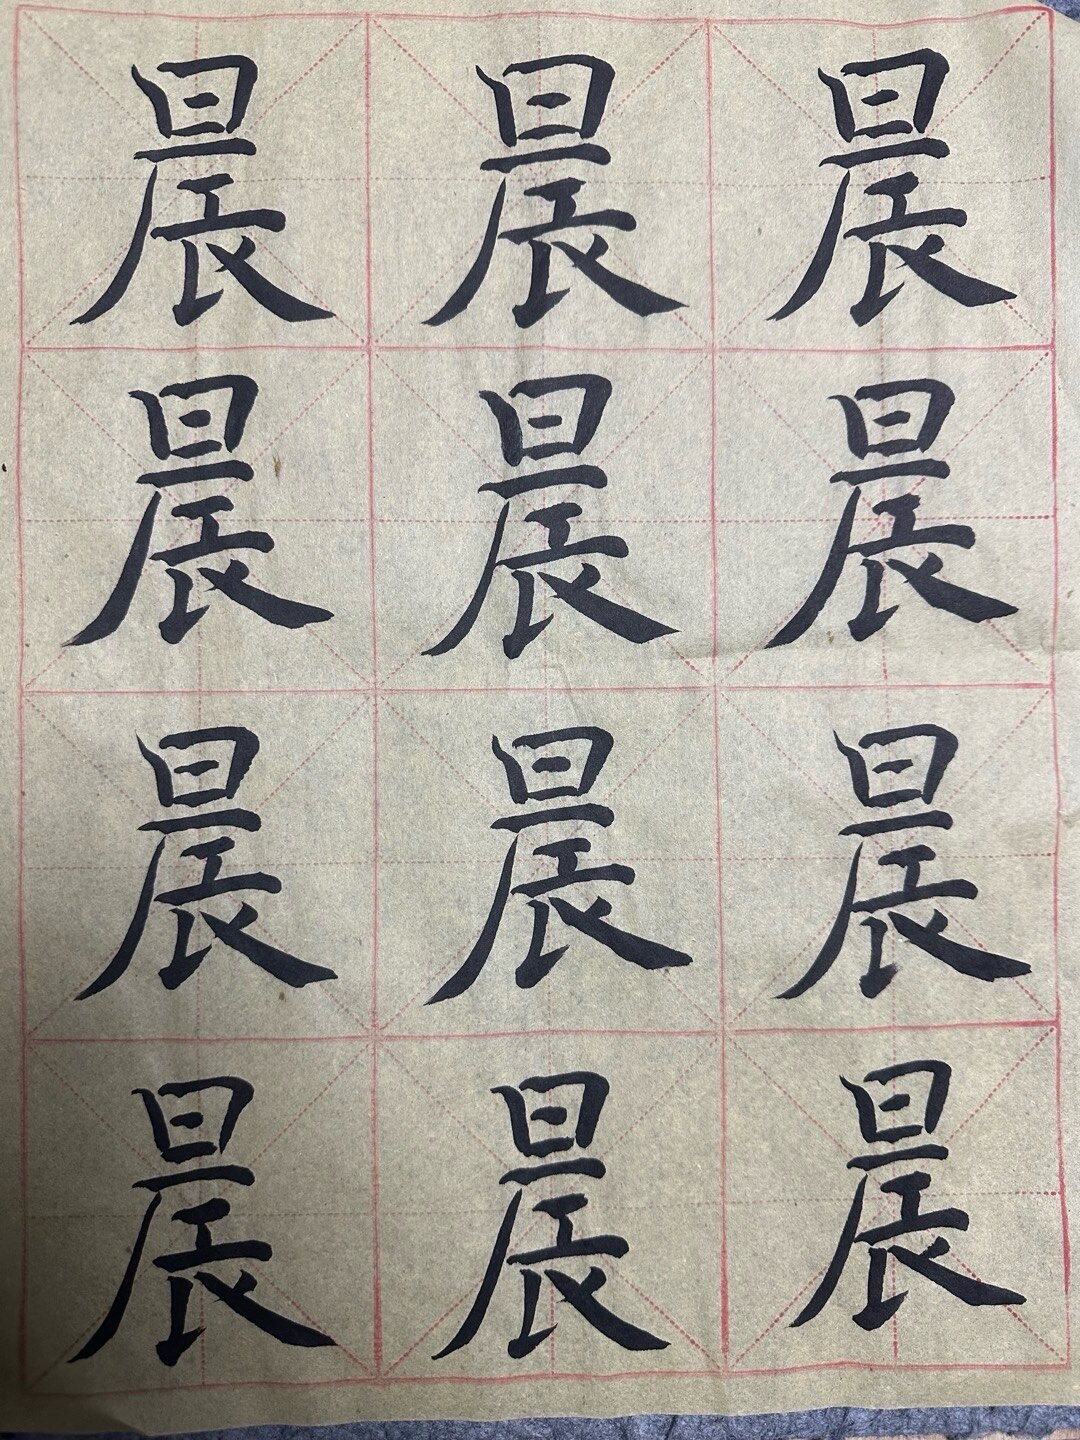 晨晨晨
晨晨晨
晨晨晨
晨晨晨